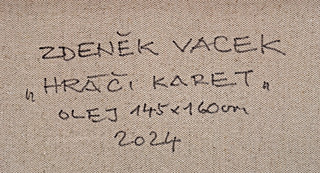 ZDENĚK VACEK
„HRÁČI KARET„
OLEJ 145x160cm
2024